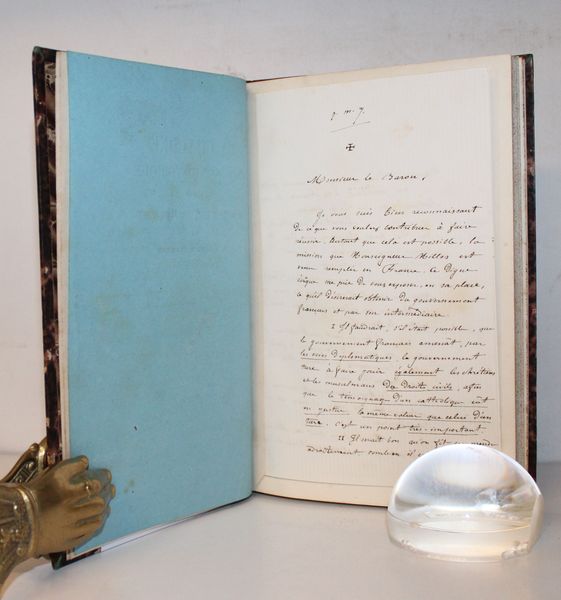 j. m. j.
✠
Monsieur le Baron,
Je vous suis bien reconnaissant
de ce que vous voulez contribuer à faire
réussir autant que cela est possible, la
mission que Monseigneur Hillos est
venu remplir en France. Le digne
évêque me prie de vous exposer, en sa place,
ce qu'il désirerait obtenir du gouvernement
français et par son intermédiaire
1 Il faudrait, s'il était possible, que
le gouvernement français amenât, par
les voies diplomatiques, le gouvernement
turc à faire jouir également les chrétiens
et les musulmans des droits civils, afin
que le témoignage d'un catholique eût
en justice la même valeur que celui d'un
turc. C'est un point très-important
2 Il serait bon qu'on fît
directement